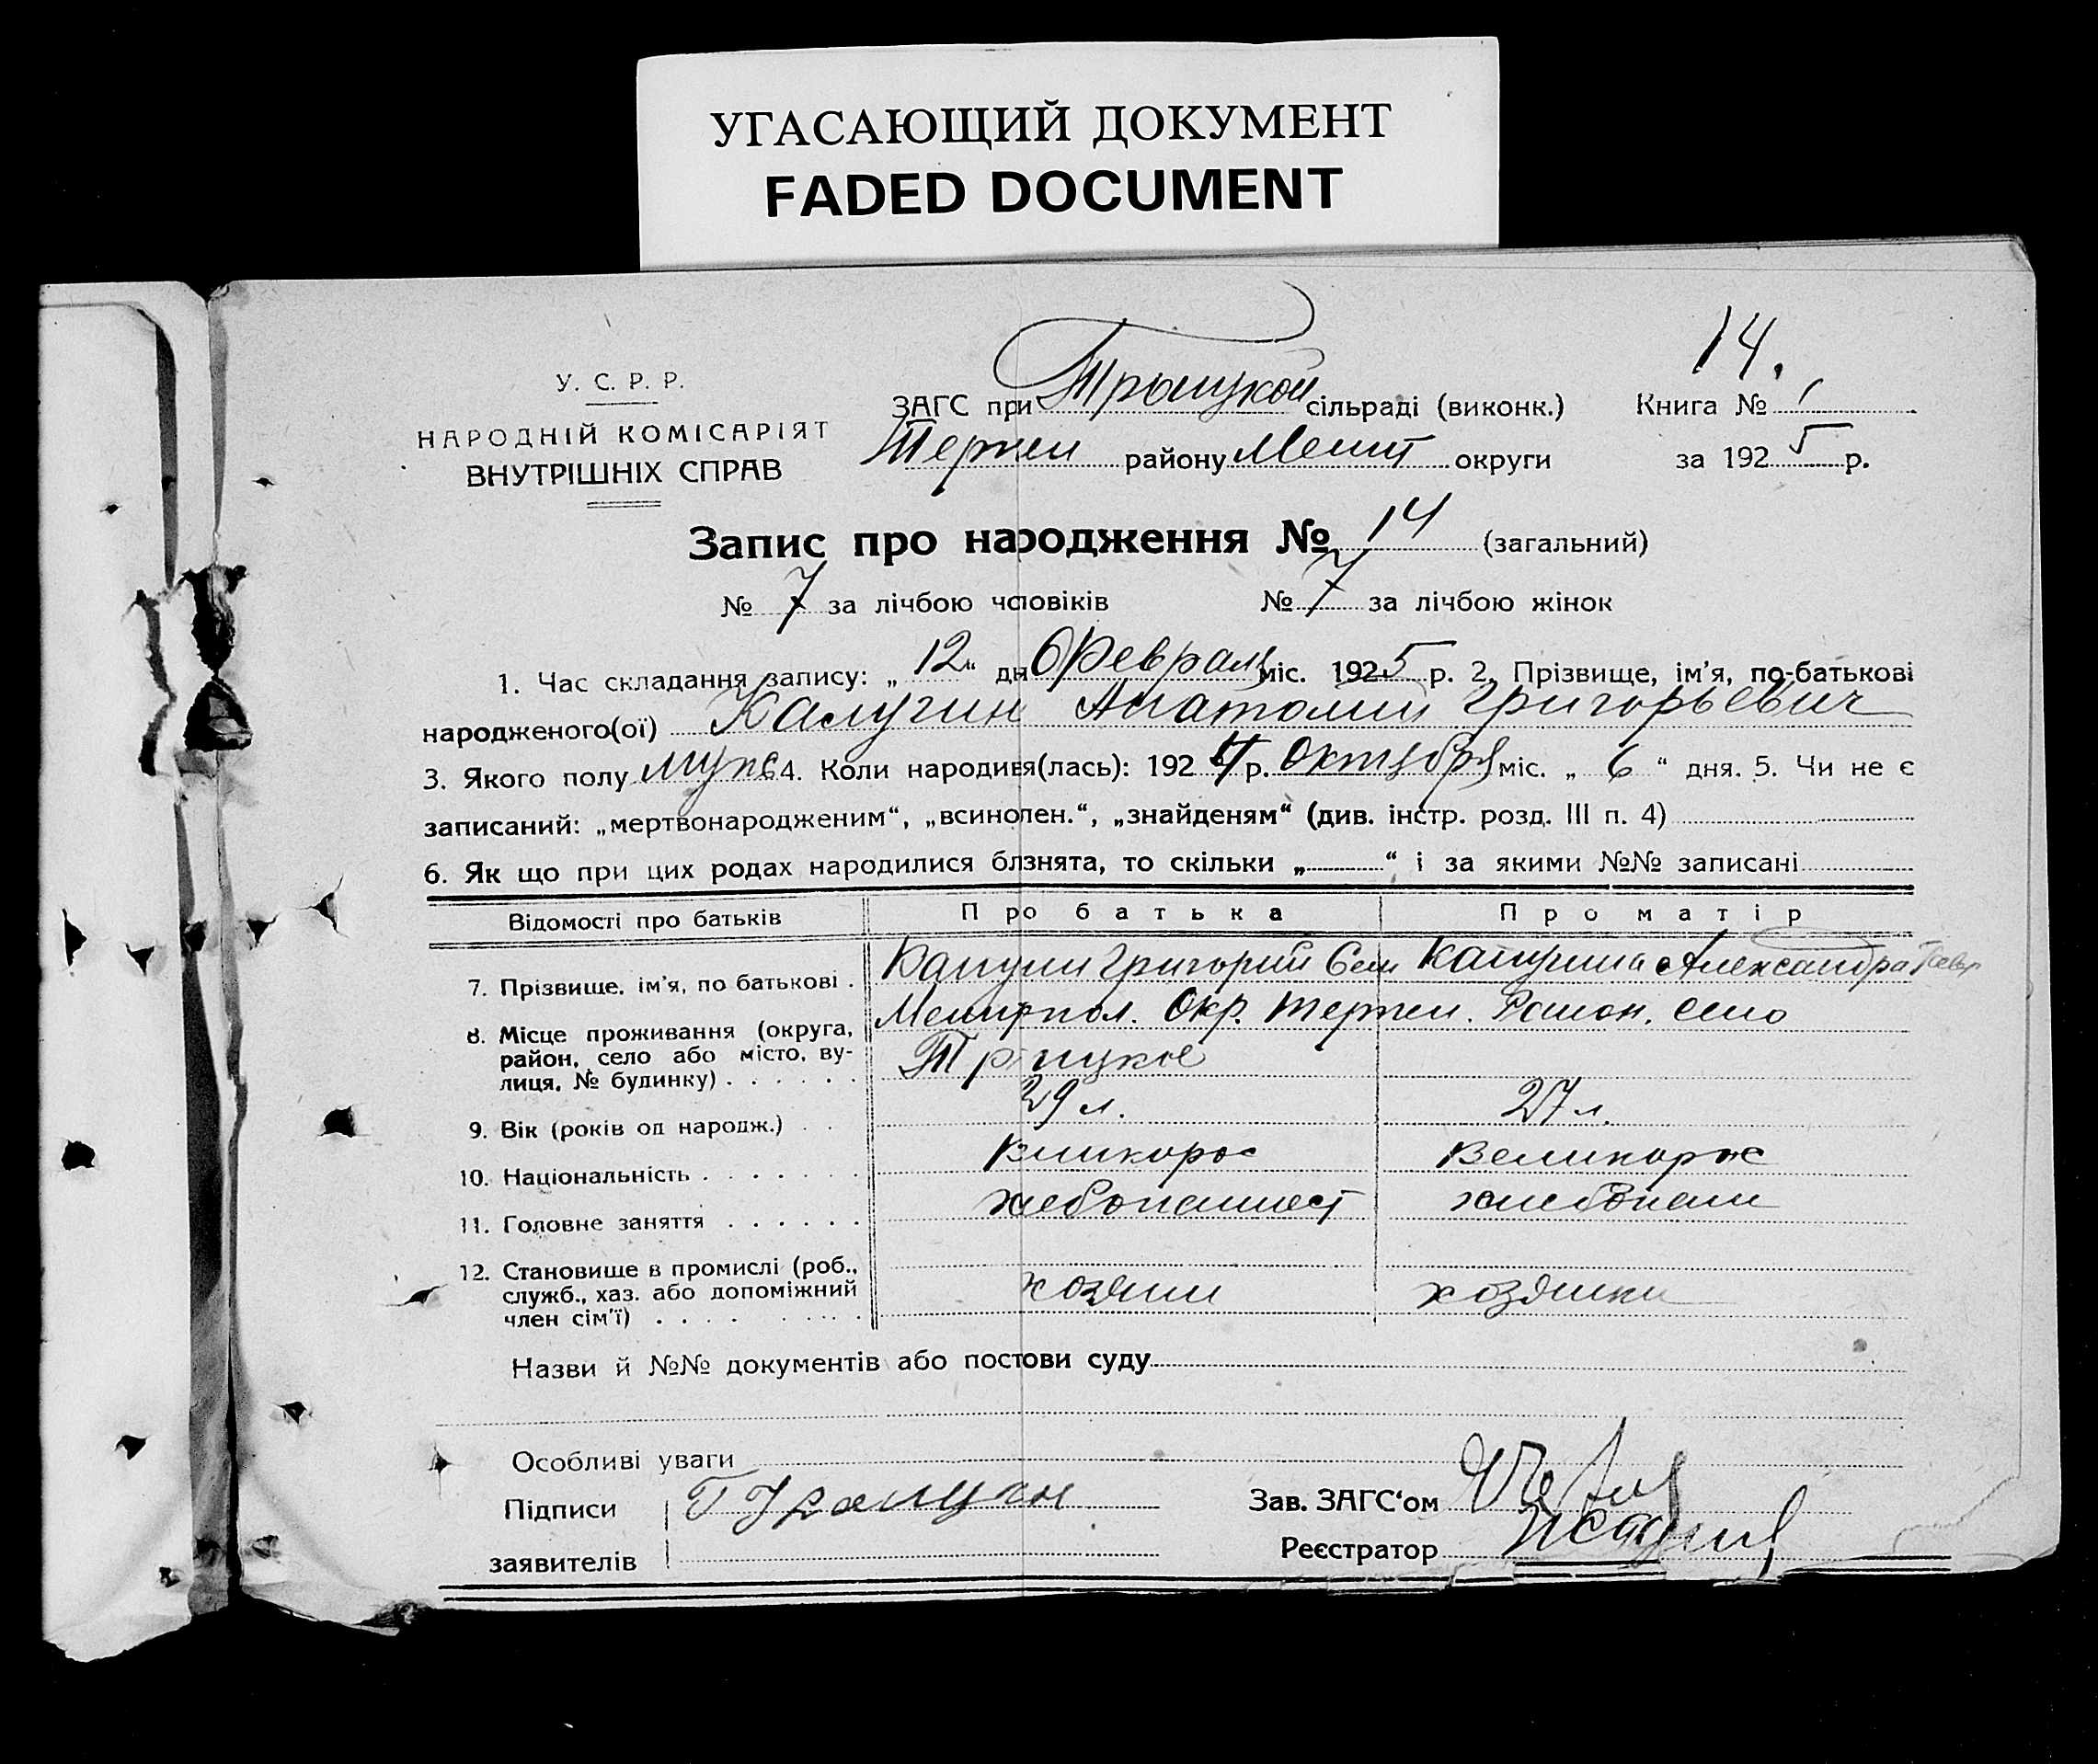 УГАСАЮЩИЙ ДОКУМЕНТ
FADED DOCUMENT
14.
У. С. Р. Р.
НАРОДНІЙ КОМІСАРІЯТ
ВНУТРІШНІХ СПРАВ
ЗАГС при Троицкой сільраді (виконк.) Книга № 1
Терпен району Мелит округи за 1925 р.
Запис про народження № 14 (загальний)
№ 7 за лічбою чоловіків № 7 за лічбою жінок
1. Час складання запису: „12“ дн Февраля міс. 1925 р. 2. Прізвище, ім’я, по-батькові
народженого(ої) Калугин Анатолий Григорьевич
3. Якого полу муж 4. Коли народився(лась): 1924 р. Октября міс. „ 6 “ дня. 5. Чи не є
записаний: „мертвонародженим“, „всиновлен.“, „знайденям“ (див. інстр. розд. III п. 4)
6. Як що при цих родах народилися близнята, то скільки „ “ і за якими №№ записані
Відомості про батьків Про батька Про матір
7. Прізвище, ім’я, по батькові . Калугин Григорий Сем Калугина Александра
8. Місце проживання (округа, район, село або місто, вулиця, № будинку) . . . . . . Мелитпол. Окр. Терпен. Район. село
Троицкое
9. Вік (років од народж.) . . 29 л. 27 л.
10. Національність . . . . . . . Великорос Великорос
11. Головне заняття . . . . . . хлебопашест хлебопаш
12. Становище в промислі (роб., служб., хаз. або допоміжний член сім’ї) . . . . . . . . хозяин хозяики
Назви й №№ документів або постови суду
Особливі уваги
Підписи Г Калугин Зав. ЗАГС‘ом
заявителів Реєстратор